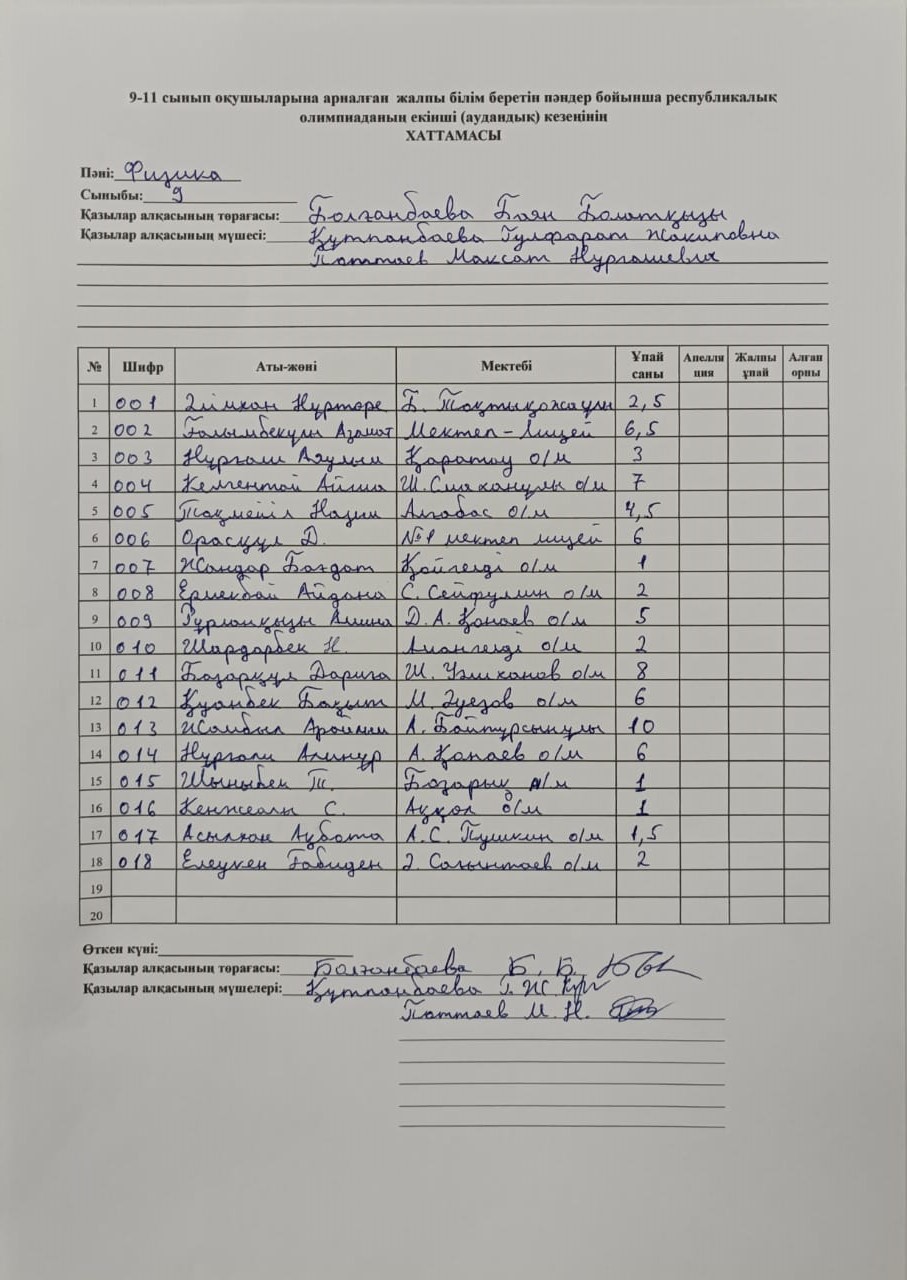 9-11 сынып оқушыларына арналған жалпы білім беретін пәндер бойынша республикалық
олимпиаданың екінші (аудандық) кезеңінің
ХАТТАМАСЫ
Пәні: Физика
Сыныбы: 9
Қазылар алқасының төрағасы: Болғанбаева Баян Болатқызы
Қазылар алқасының мүшесі: Құтпанбаева Гулфарат Жакиповна
Паттаев Максат Нургашевич
№ Шифр Аты-жөні Мектебі Ұпай саны Апелляция Жалпы ұпай Алған орны
1 001 Әлімхан Нұртөре Б. Тоқтықожаұлы 2,5
2 002 Ғалымбекұлы Азамат Мектеп-Лицей 6,5
3 003 Нұрғали Аяулым Қаратау о/м 3
4 004 Келгентай Айша Ш. Смаханұлы о/м 7
5 005 Назым Алғабас о/м 4,5
6 006 Орасқұл Д. №1 мектеп лицей 6
7 007 Жандар Бағдат Қойгелді о/м 1
8 008 Ермекбай Айдана С. Сейфуллин о/м 2
9 009 Тұрланқызы Амина Д.А. Қонаев о/м 5
10 010 Шардарбек Н. Амангелді о/м 2
11 011 Базарқұл Дариға Ш. Уәлиханов о/м 8
12 012 Қуанбек Бақыт М. Әуезов о/м 6
13 013 Жамбыл Арайлым А. Байтұрсынұлы 10
14 014 Нұрғали Алинұр А. Қонаев о/м 6
15 015 Шыныбек Т. Базарық о/м 1
16 016 Кенжеалы С. Ақкөл о/м 1
17 017 Асылхан Ақбота А.С. Пушкин о/м 1,5
18 018 Елеукен Ғабиден Ә. Сағынтаев о/м 2
19
20
Өткен күні:
Қазылар алқасының төрағасы: Болғанбаева Б. Б.
Қазылар алқасының мүшелері: Құтпанбаева Г. Ж.
Паттаев М. Н.